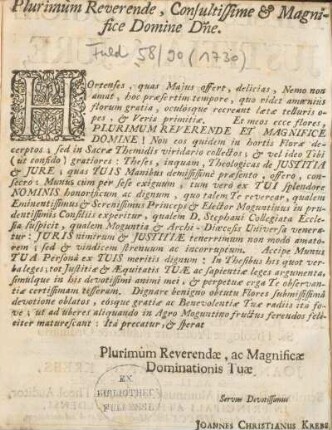 Plurimùm Reverende, Consultissime & Magni-
fice Domine Dñe.
Fuld 58/90 (1730)
HOrtenses, quas Majus offert, delicias, Nemo non
amat, hoc præsertim tempore, quo videt amœnitis
florum gratia, oculósque recreant lætæ telluris o-
pes, & Veris primitiæ. Et meos ecce flores,
PLURIMUM REVERENDE ET MAGNIFICE
DOMINE! Non eos quidem in hortis Floræ de-
cerptos; sed in Sacræ Themidis viridario collectos; & vel ideò Tibi
(ut confido) gratiores: Theses, inquam, Theologicas de JUSTITIA
& JURE, quas TUIS Manibus demississimè præsento, offero, con-
secro: Munus cùm per sese exiguum, tum verò ex TUI splendore
NOMINIS honorificum ac dignum, quo talem Te revereor, qualem
Eminentissimus & Serenissimus Princeps & Elector Moguntinus in pru-
dentissimis Consiliis experitur, qualem D. Stephani Collegiata Eccle-
sia suspicit, qualem Moguntia & Archi-Diœcesis Universa venera-
tur: JURIS nimirum & JUSTITIÆ tenerrimum non modò amato-
rem; sed & vindicem strenuum ac incorruptum. Accipe Munus
TUA Personâ ex TUIS meritis dignum: In Thesibus his quot ver-
ba leges; tot Justitiæ & Æquitatis TUÆ ac sapientiæ leges argumenta,
simúlque in his devotissimi animi mei, & perpetuæ erga Te observan-
tiæ certissimam tesseram. Dignare benigno obtutu Flores submississimâ
devotione oblatos, eósque gratiæ ac Benevolentiæ Tuæ radiis ità fo-
ve, ut ad uberes aliquando in Agro Moguntino fructus ferendos feli-
citer maturescant: Ità precatur, & sperat
Plurimùm Reverendæ, ac Magnificæ
Dominationis Tuæ
EX
BIBLIOTHECA
FULDENSI
Servus Devotissimus
JOANNES CHRISTIANUS KREBS